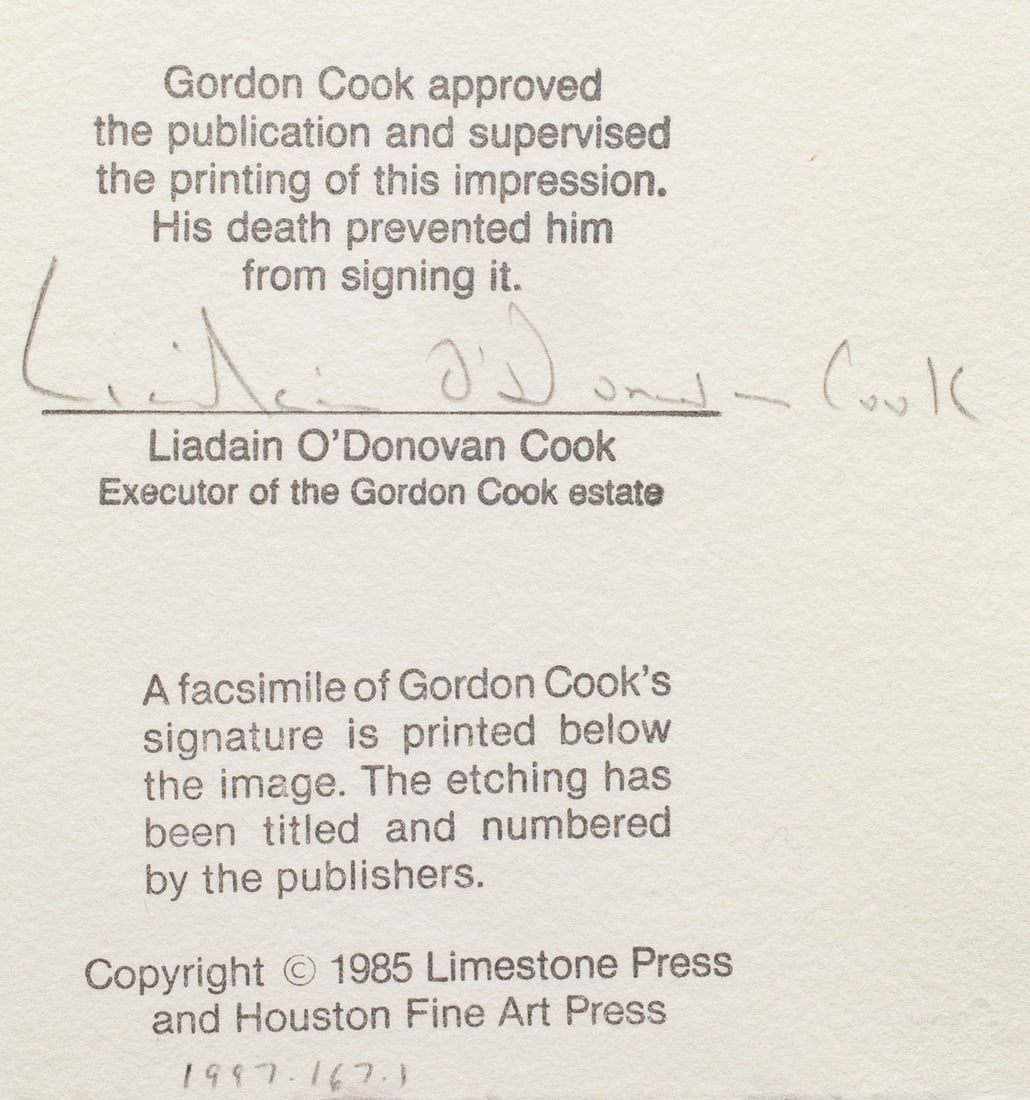 Gordon Cook approved
the publication and supervised
the printing of this impression.
His death prevented him
from signing it.
Liadain O'Donovan Cook
Liadain O'Donovan Cook
Executor of the Gordon Cook estate
A facsimile of Gordon Cook's
signature is printed below
the image. The etching has
been titled and numbered
by the publishers.
Copyright © 1985 Limestone Press
and Houston Fine Art Press
1997.167.1